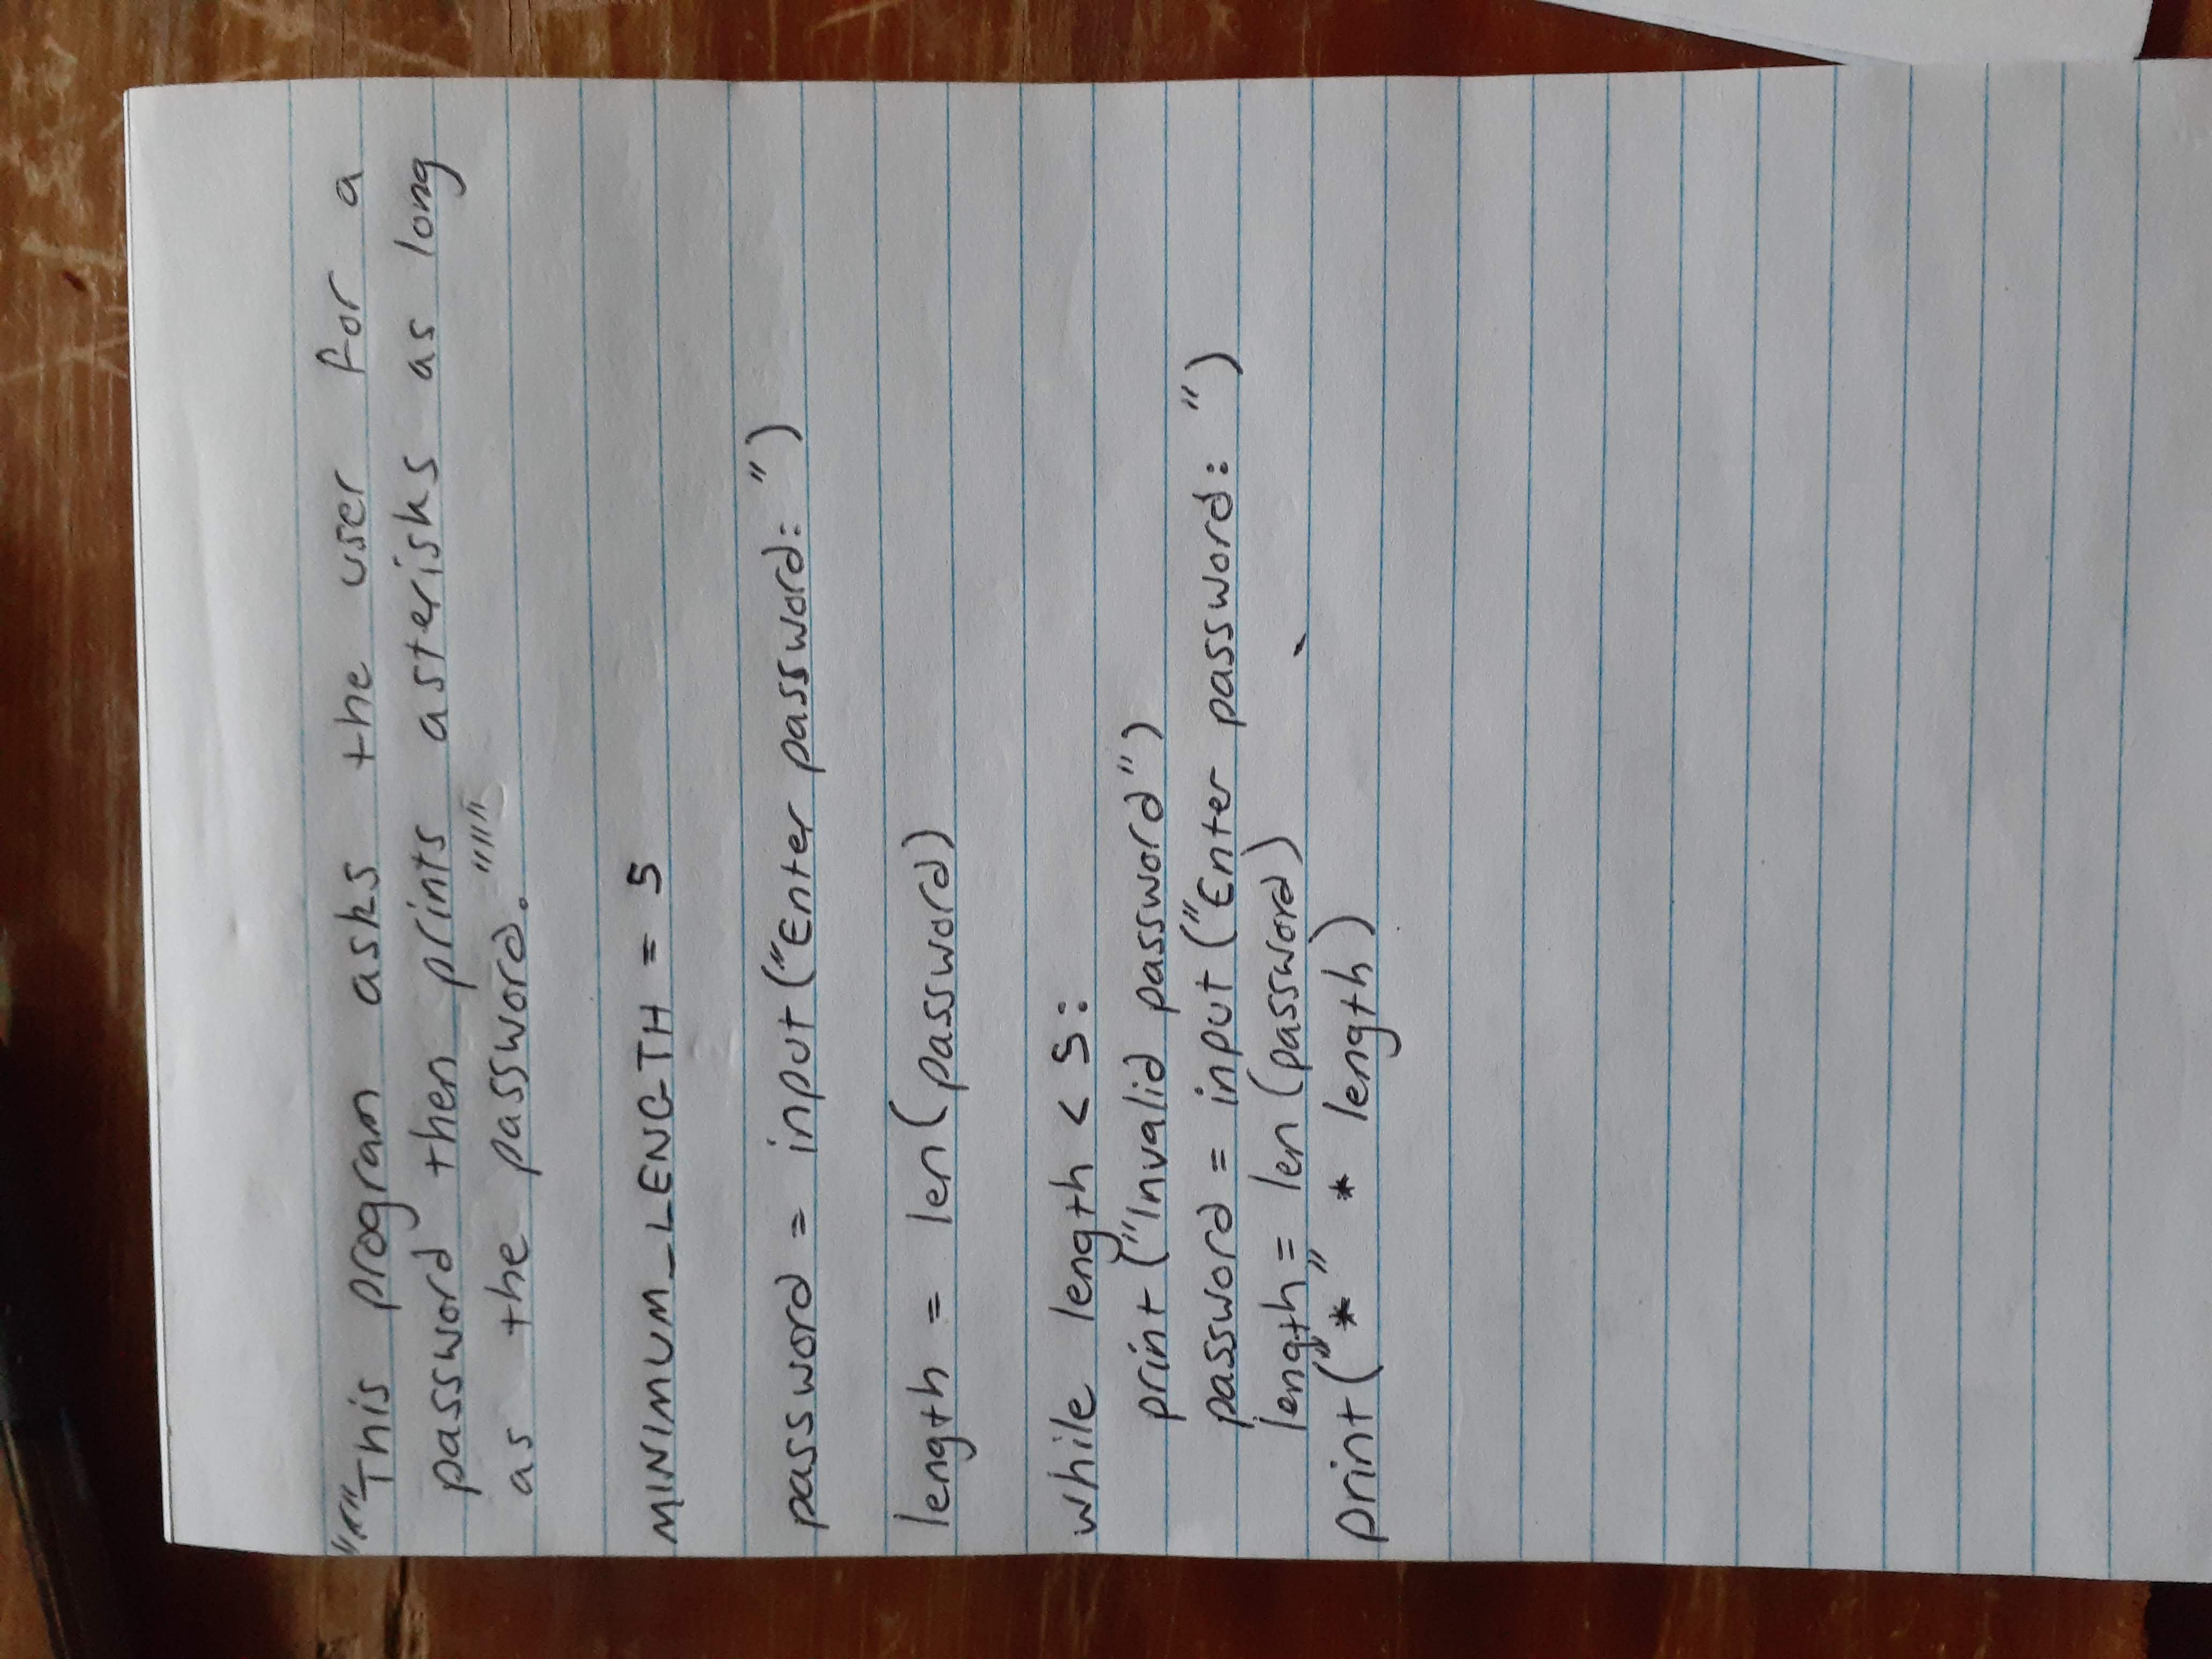 """This program asks the user for a
password then prints asterisks as long
as the password."""
MINIMUM_LENGTH = 5
password = input("Enter password: ")
length = len(password)
while length < 5:
print("Invalid password")
password = input("Enter password: ")
length = len(password)
print("*" * length)